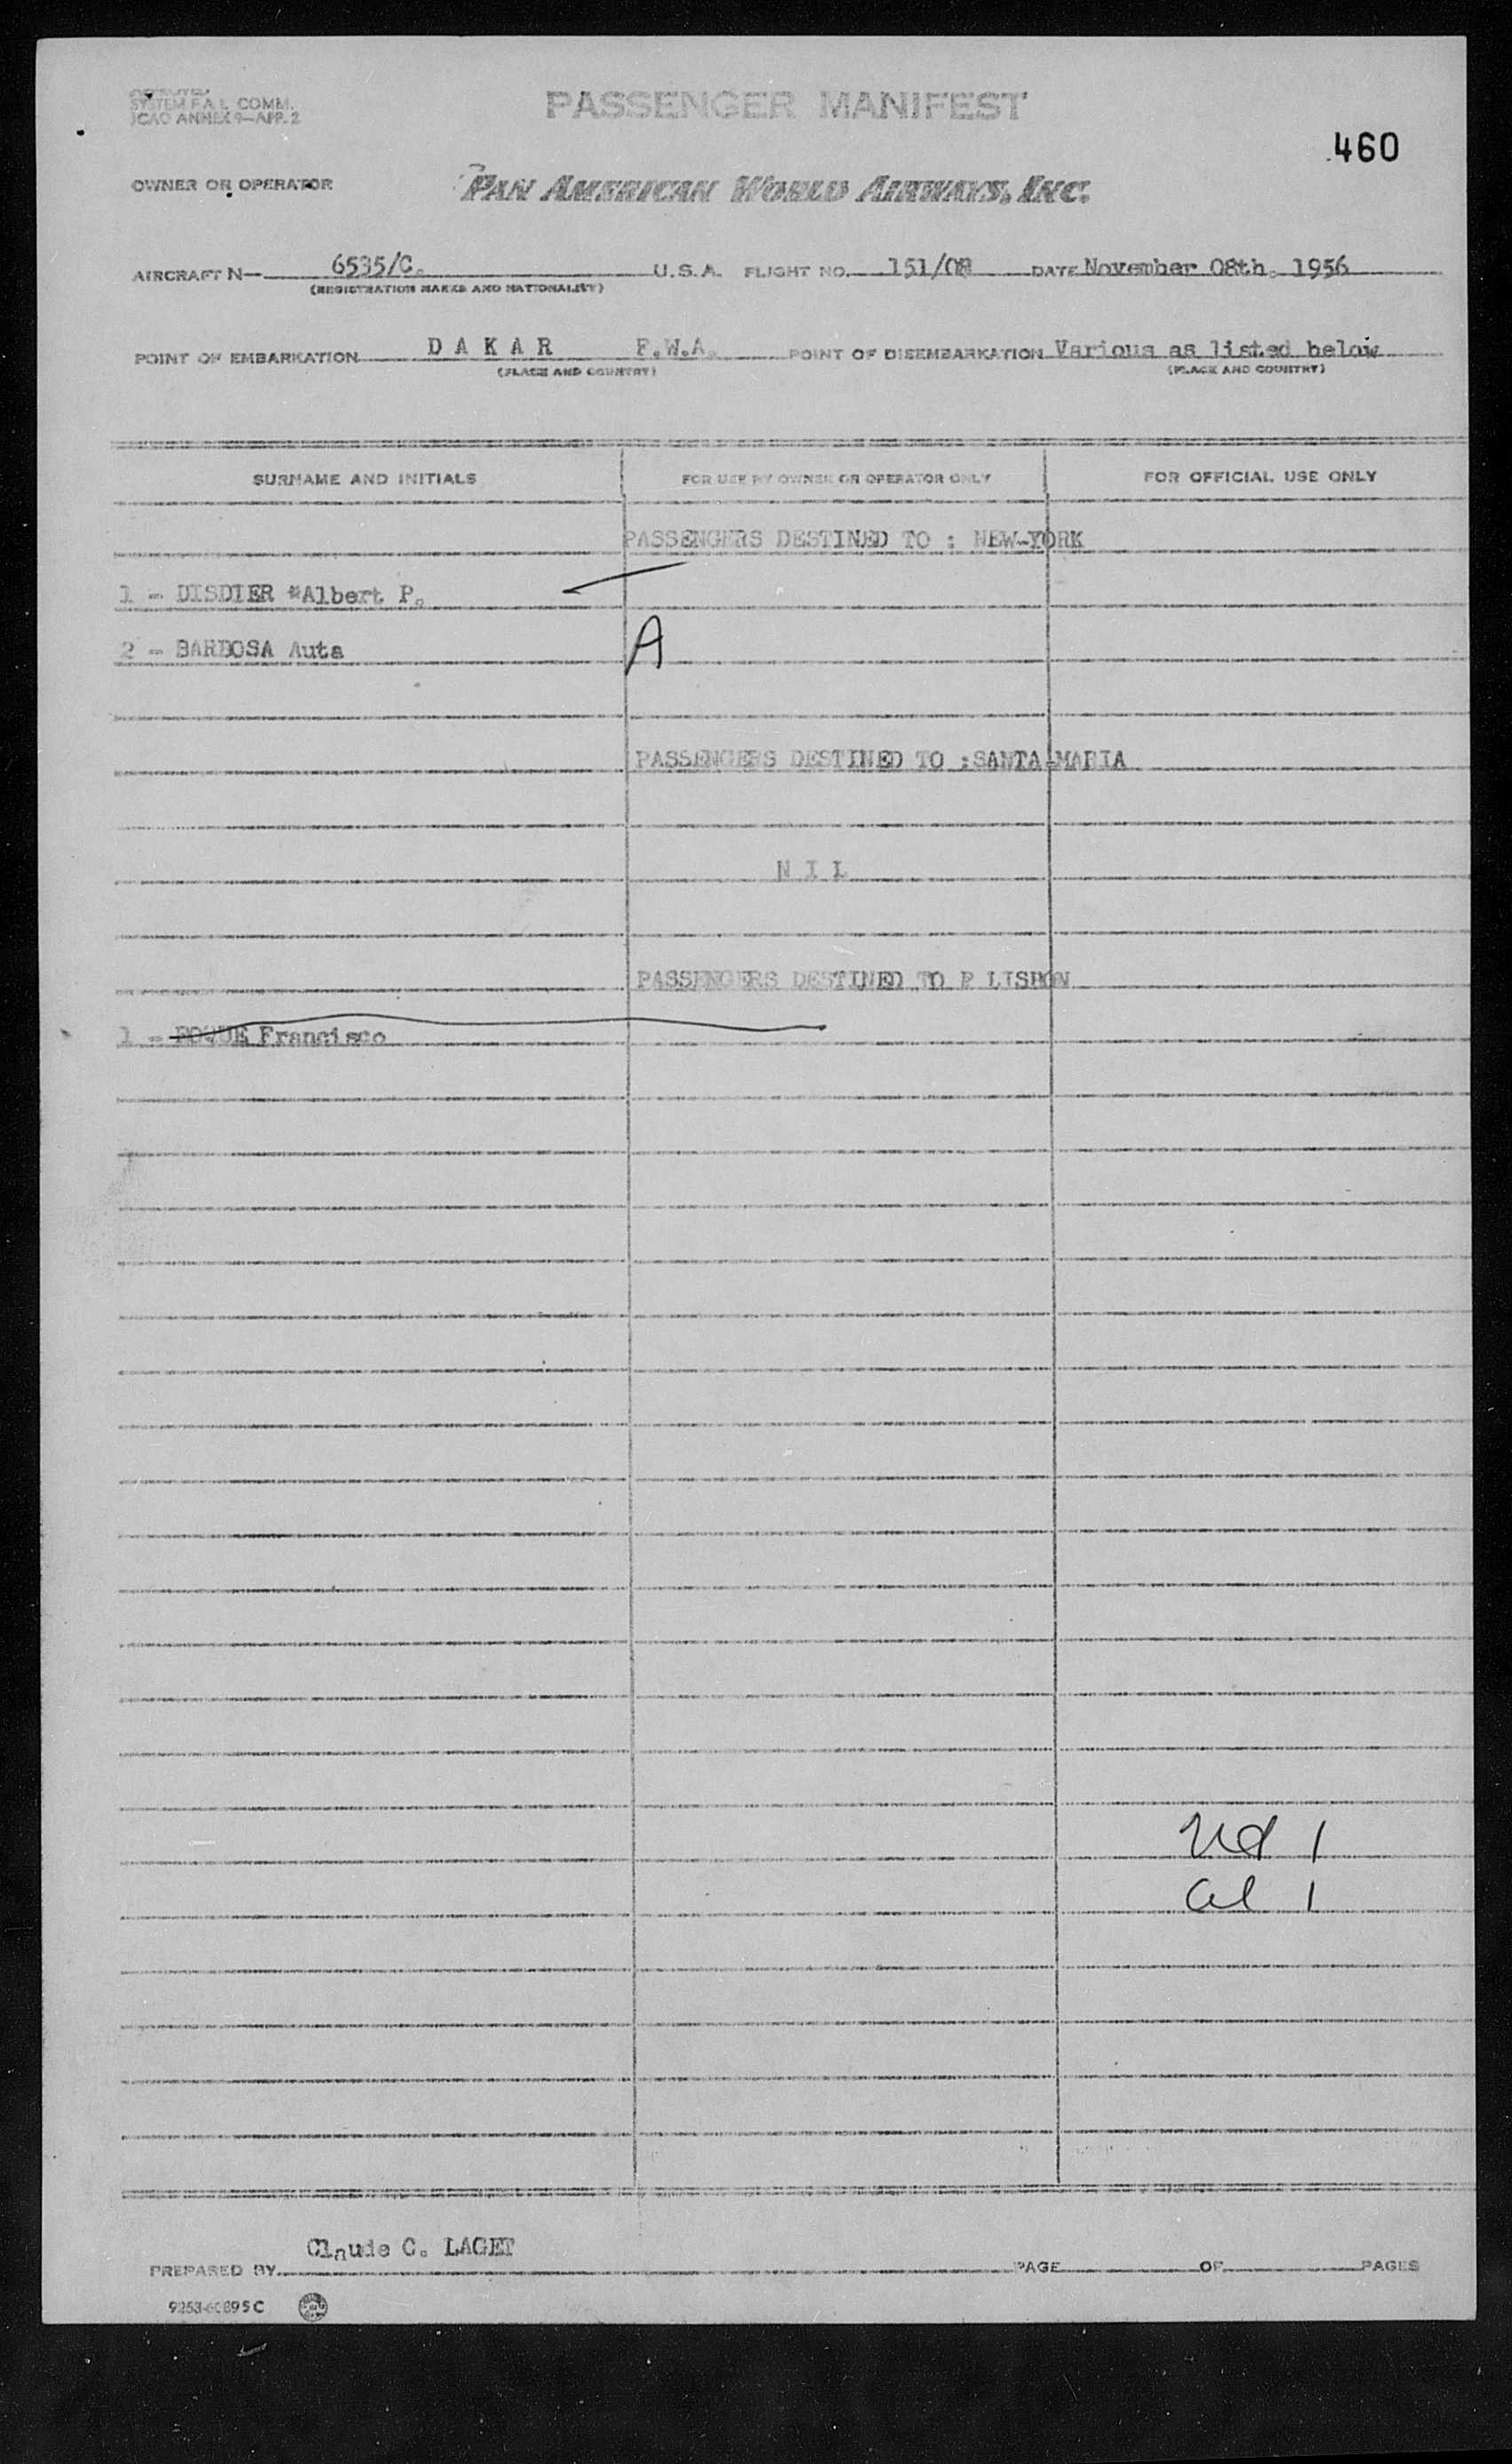 SYSTEM F.A.L. COMM.
ICAO ANNEX 9—APP. 2
PASSENGER MANIFEST
460
OWNER OR OPERATOR PAN AMERICAN WORLD AIRWAYS, INC.
AIRCRAFT N— 6535/C. U.S.A. FLIGHT NO. 151/08 DATE November 08th. 1956
(REGISTRATION MARKS AND NATIONALITY)
POINT OF EMBARKATION D A K A R F.W.A. POINT OF DISEMBARKATION Various as listed below
(PLACE AND COUNTRY) (PLACE AND COUNTRY)
SURNAME AND INITIALS FOR USE BY OWNER OR OPERATOR ONLY FOR OFFICIAL USE ONLY
PASSENGERS DESTINED TO : NEW-YORK
1 - DISDIER *Albert P.
2 - BARBOSA Auta A
PASSENGERS DESTINED TO :SANTA-MARIA
N I L
PASSENGERS DESTINED TO LISBON
1 - ROQUE Francisco
1
al 1
Claude C. LAGET
PREPARED BY PAGE OF PAGES
9253-60895C